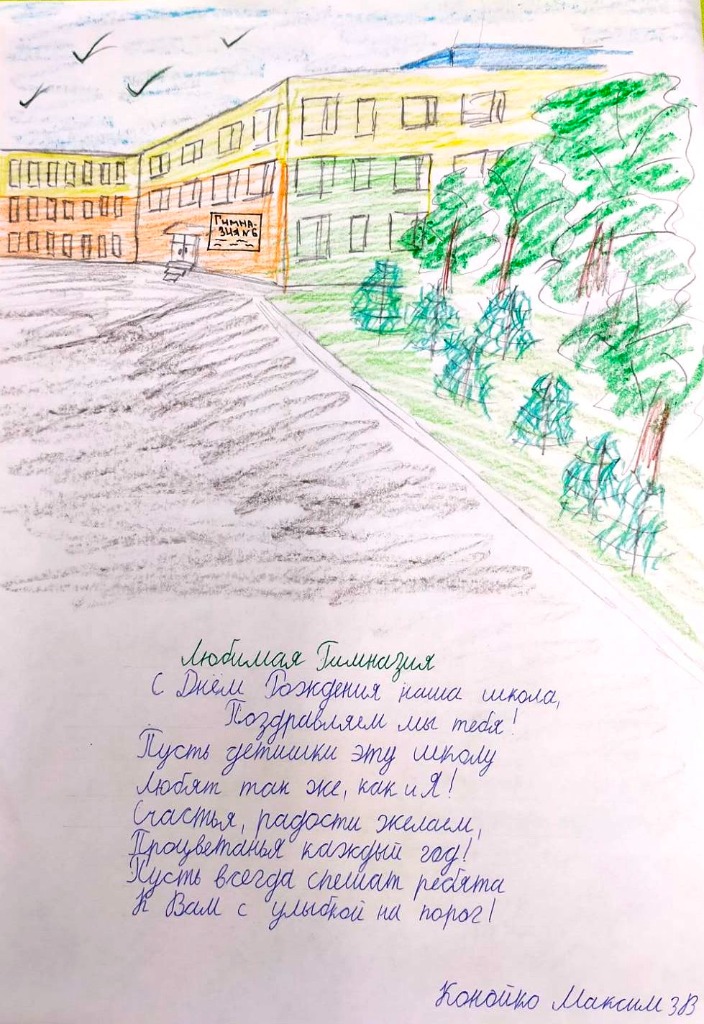 Гимна-
зия №6
Любимая Гимназия
С Днём Рождения наша школа,
Поздравляем мы тебя!
Пусть детишки эту школу
Любят так же, как и Я!
Счастья, радости желаем,
Процветанья каждый год!
Пусть всегда спешат ребята
К Вам с улыбкой на порог!
Конойко Максим 3В